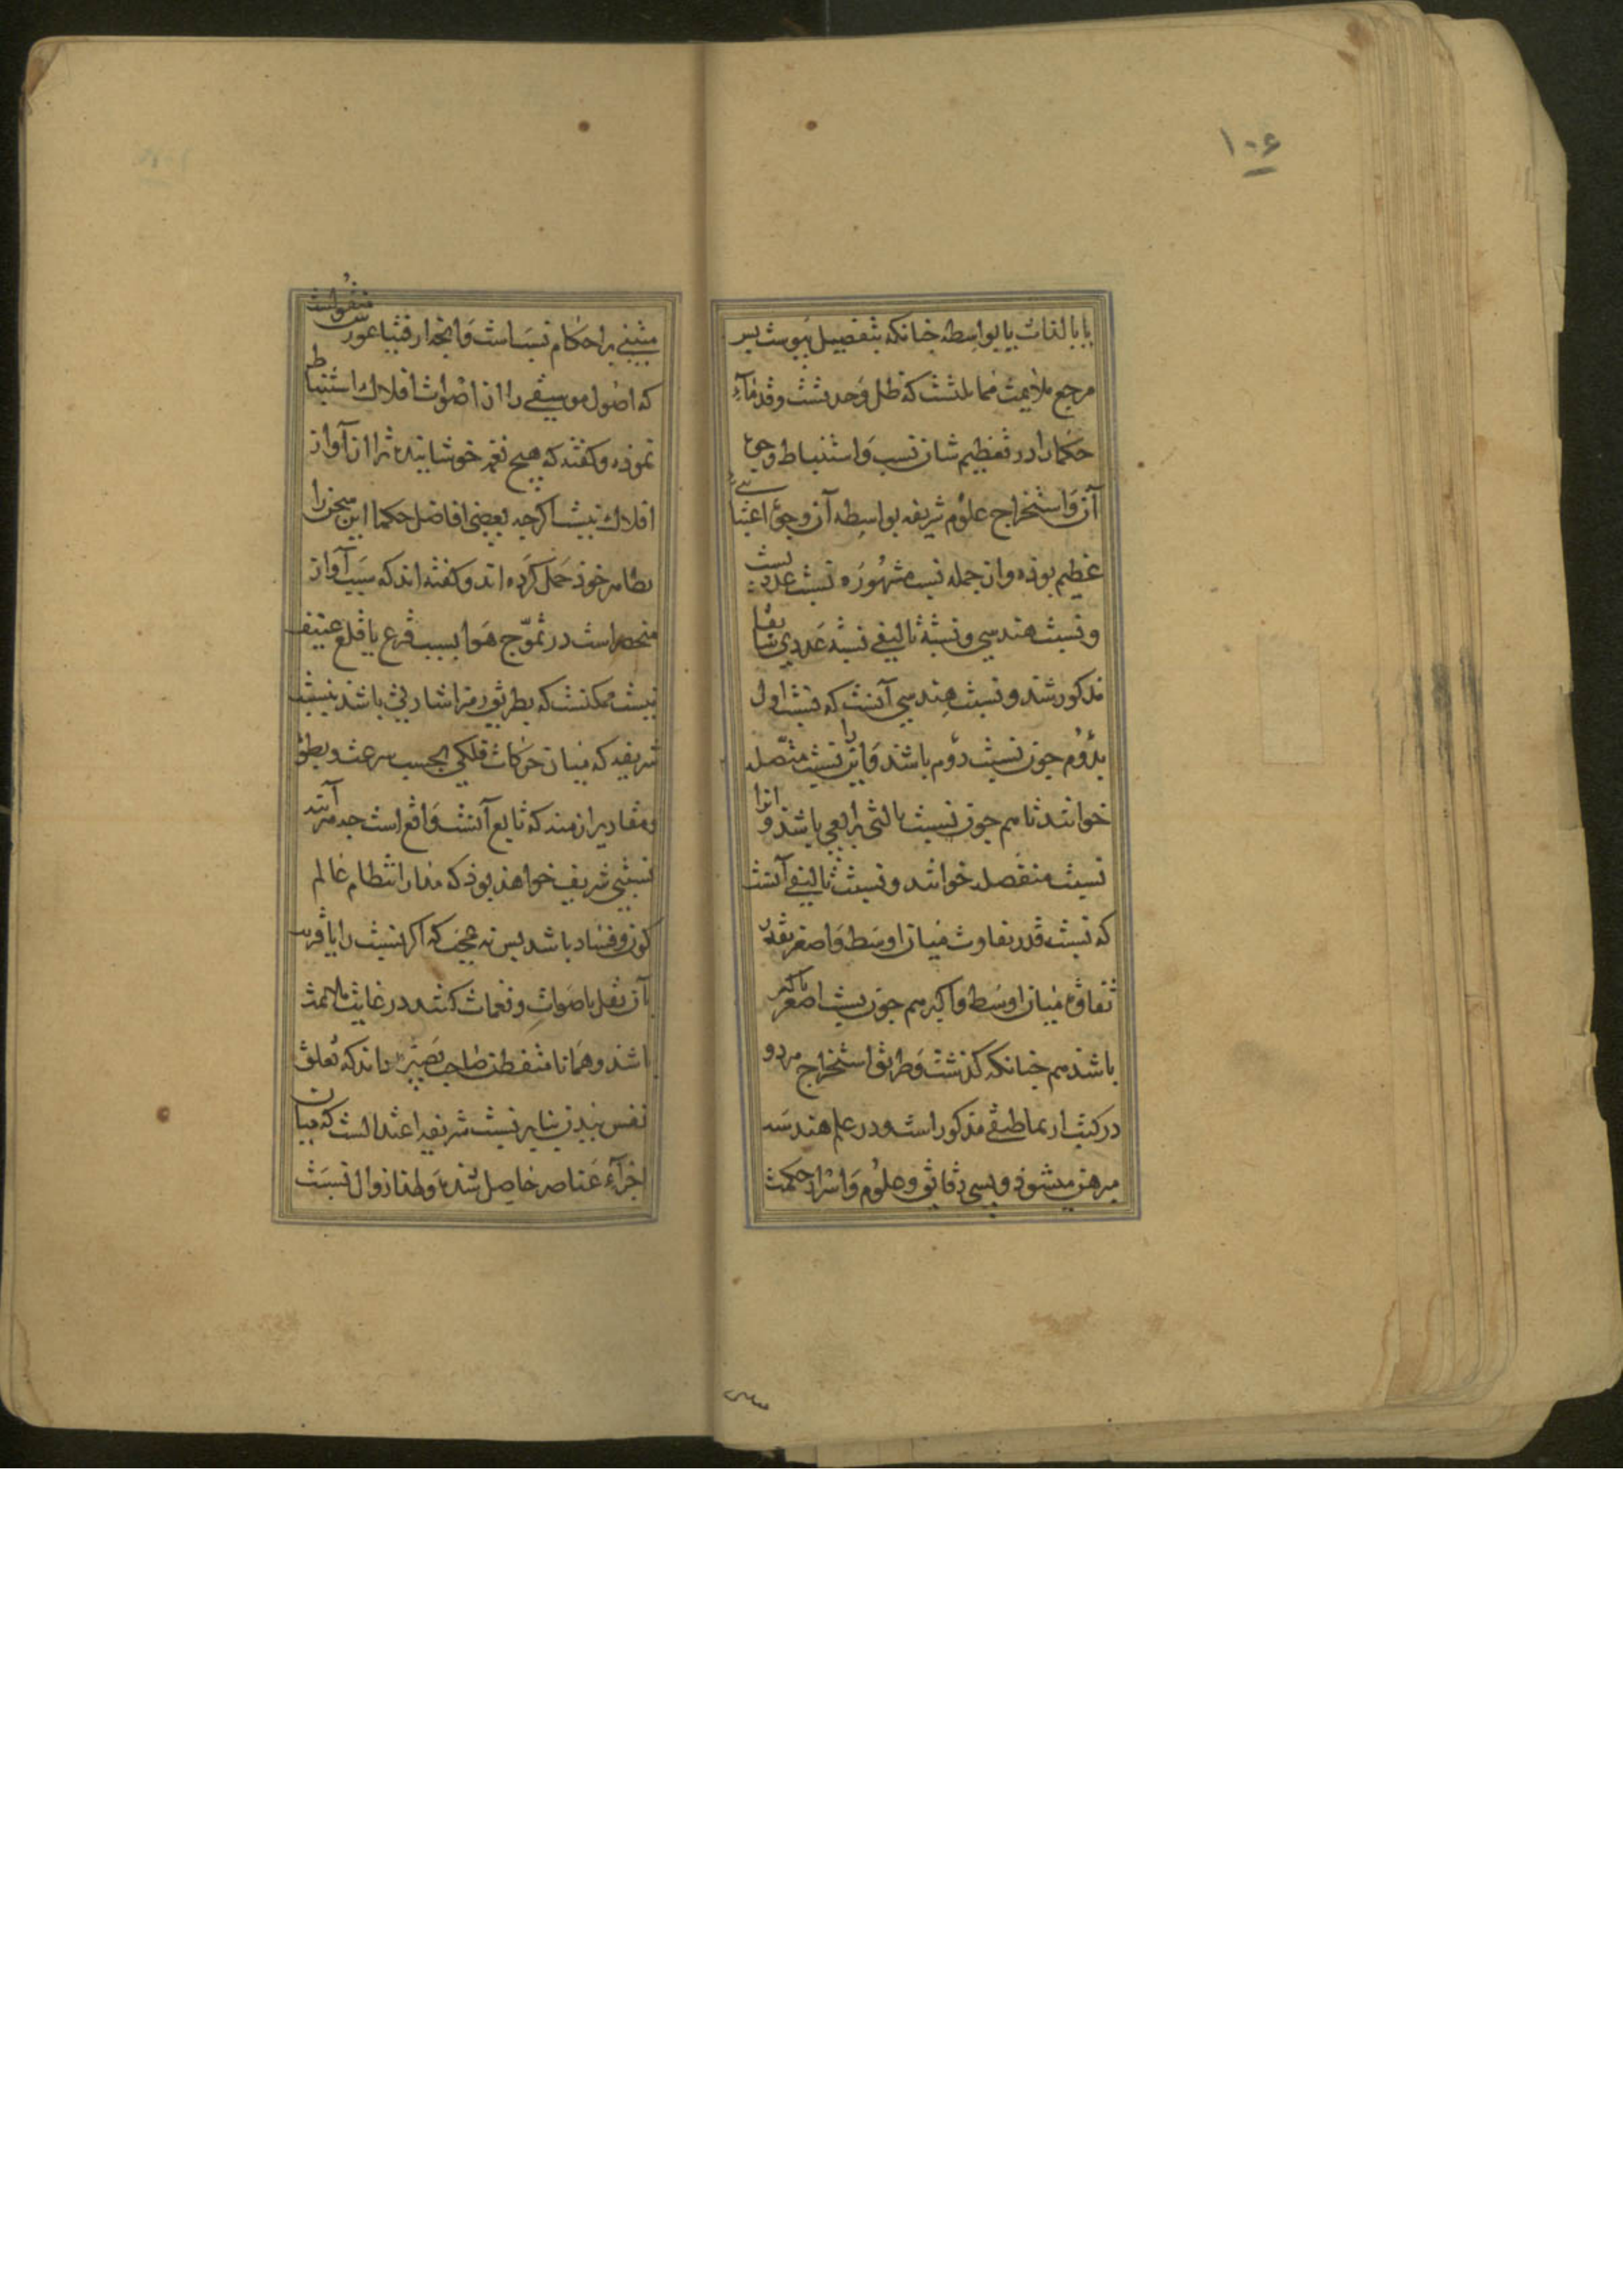 ۱۰۶
یا بالذات یا بواسطه جنانکه بتفصیل پیوست پس
مرجع ملایمت مماثلتست که ظل وحدتست و قدماء
حکما را در تعظیم شان نسب و استنباط وجوه
آن و استخراج علوم شریفه بواسطه آن وجوه اعتنایی
عظیم بوده و از جمله نسب مشهوره نسبت عددیست
و نسبت هندسی و نسبت تالیفی نسبت عددی سابقا
مذکور شد و نسبت هندسی آنست که نسبت اول
بدوم جون نسبت دوم باشد و این را نسبت متصله
خوانند تا سم جون نسبت ثالثی برابعی باشد و انرا
نسبت منفصله خوانند و نسبت تالیفی آنست
که نسبت قدر تفاوت میان اوسط و اصغر بقدر
تفاوت میان اوسط و اکبر سم جون نسبت اصغر باکبر
باشد سم جنانکه کذشت و طریق استخراج مردو
در کتب ارثماطیقی مذکور است و در علم هندسه
مبرهن میشود و بسی دقایق و علوم و اسرار حکمت
مبتنی بر احکام نسب است و آنجه از فیثاغورس منقولست
که اصول موسیقی را از اصوات افلاک استنباط
نموده و کفته که هیج نغمه خوشاینده تر از آواز
افلاک نیست اکرجه بعضی افاضل حکما این سخن را
بظاهر خود حمل کرده اند و کفته اند که سبب آواز
منحصر است در تموّج هوا بسبب قرع یا قلع عنیف
نیست ممکنست که بطریق رمز اشارتی باشد بنسبت
شریفه که میان حرکات فلکی بحسب سرعت و بطؤ
و مقادیر ازمنه که تابع آنست واقع است جه مرآینه
نسبتی شریف خواهد بود که مدار انتظام عالم
کون و فساد باشد پس نه عجب که اکر نسبت را یا قریب
بآن نقل باصوات و نغمات کنند در غایت ملایمت
باشد و همانا متفطن صاحب بصیرت داند که تعلق
نفس ببدن بنابر نسبت شریفه اعتدالست که میان
اجزآء عناصر حاصل شده و لهذا زوال نسبت